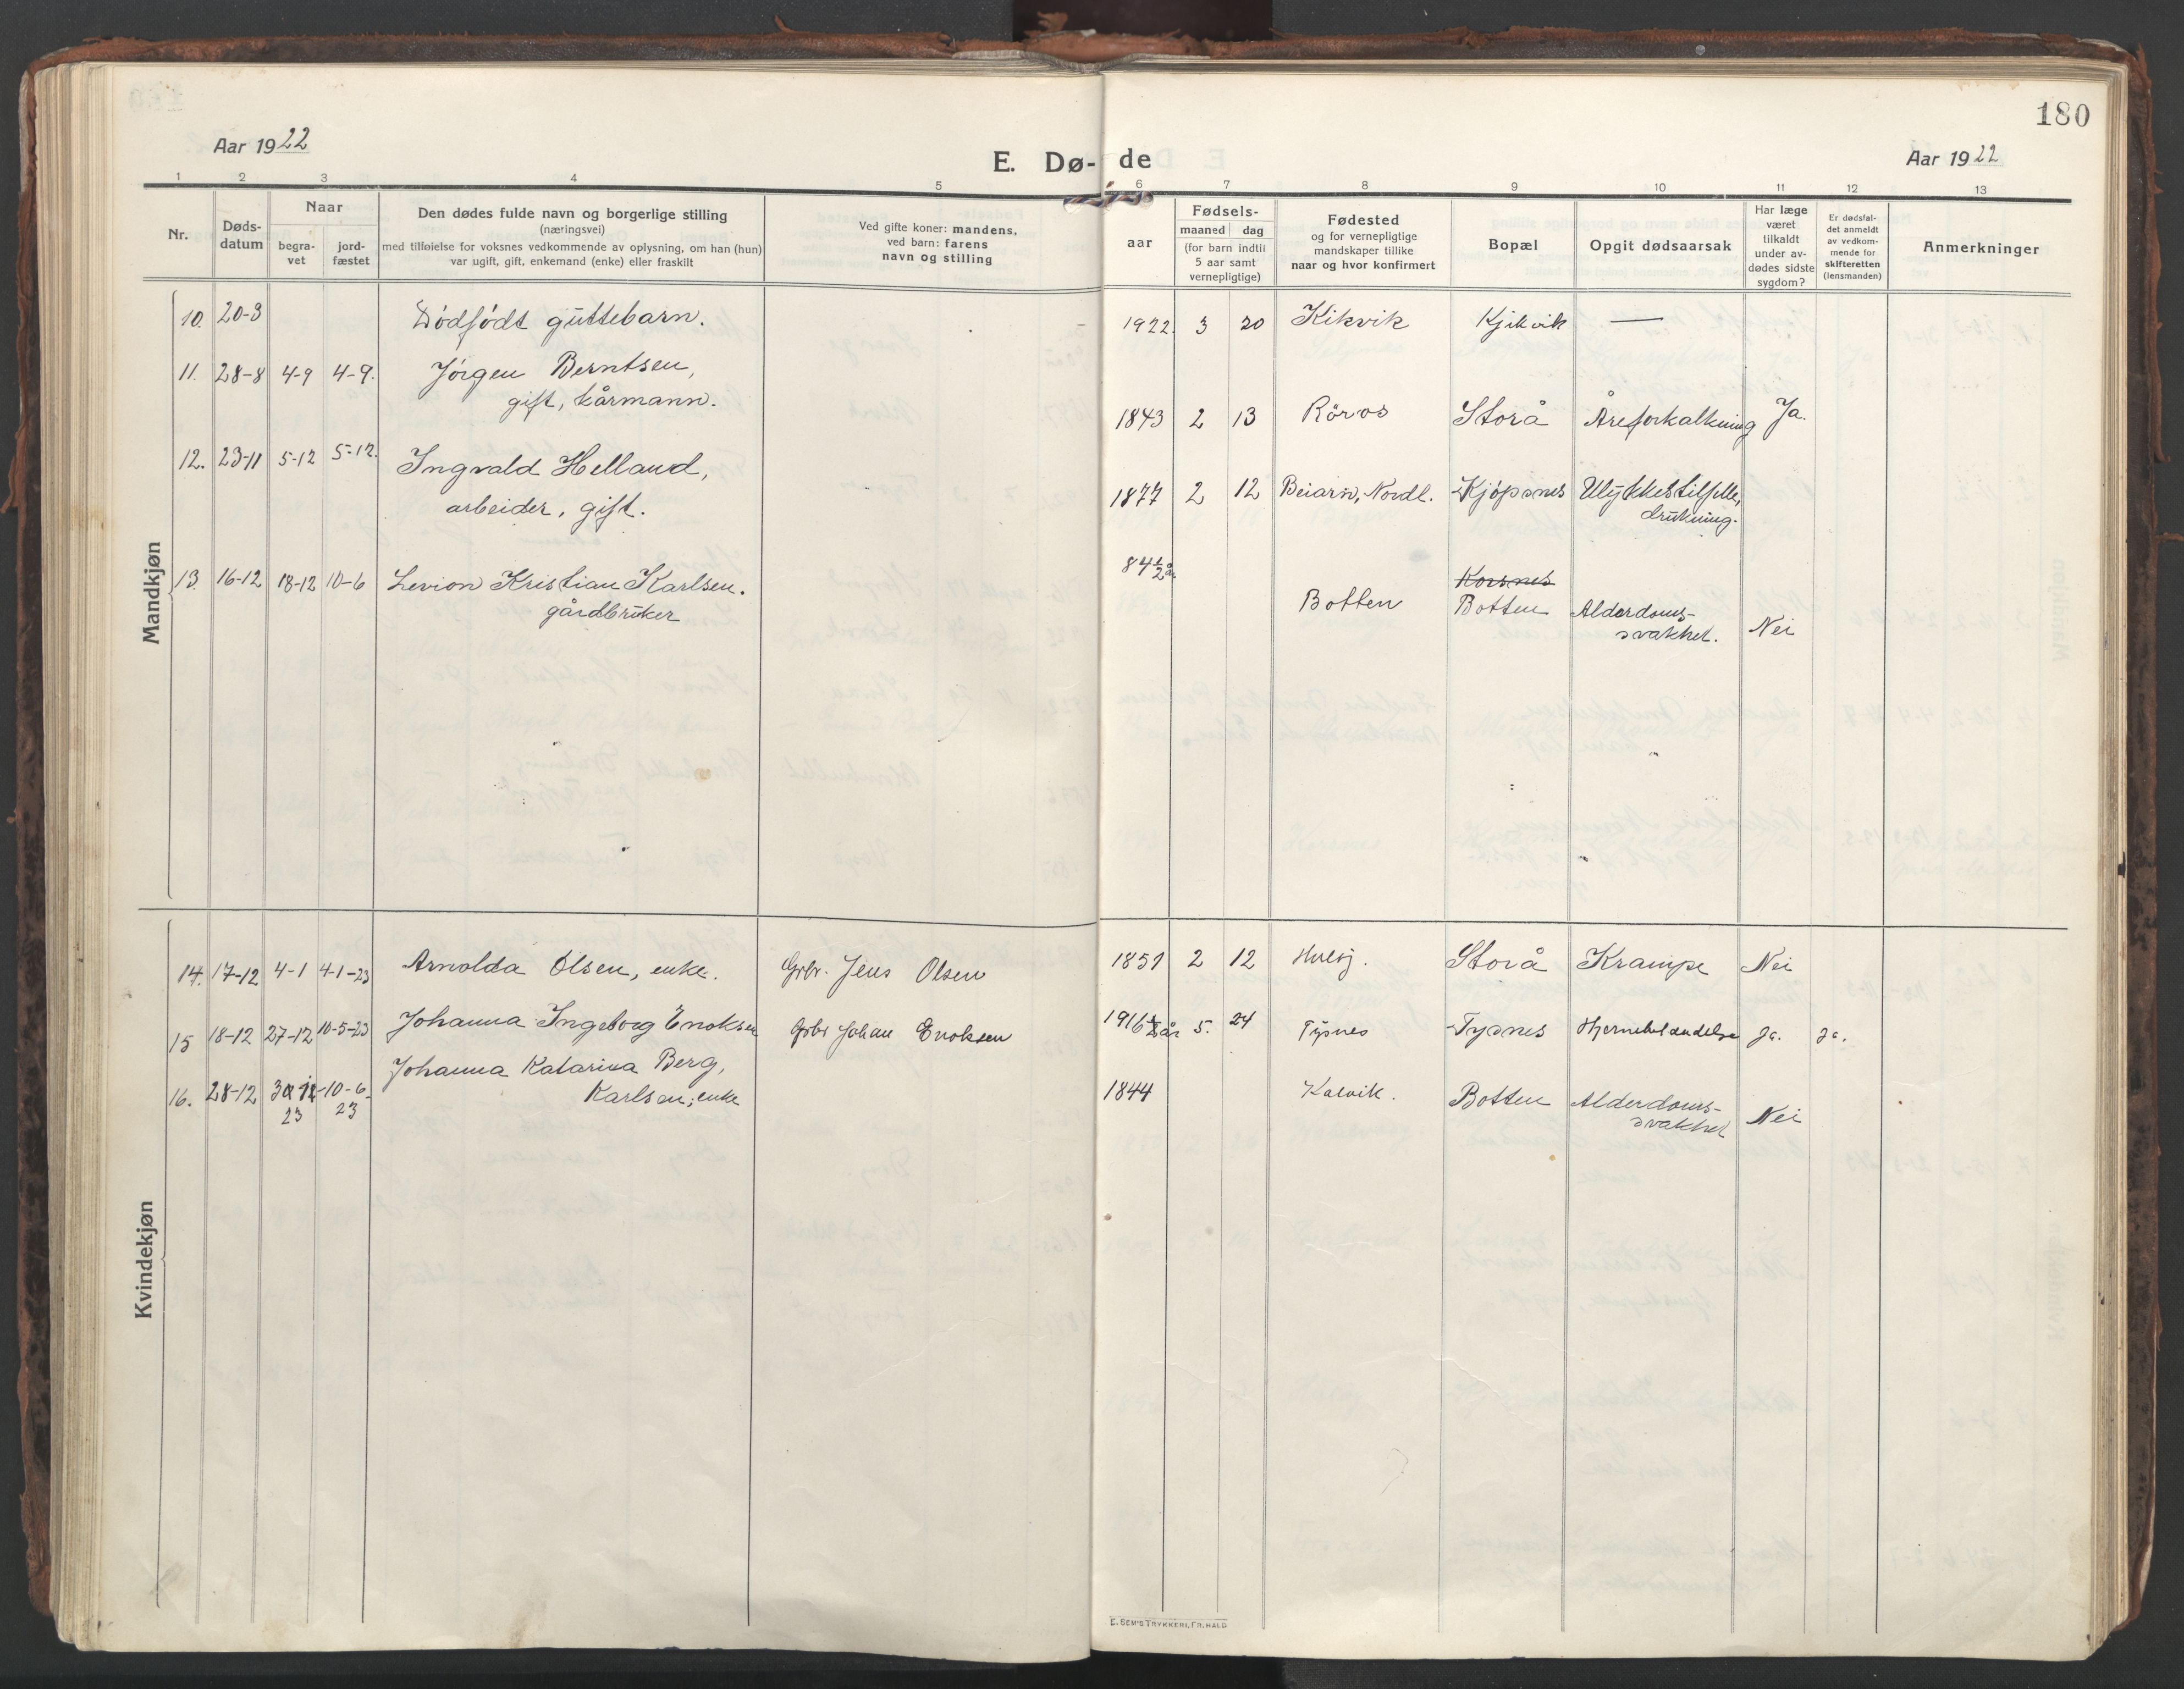 180
Aar 1922
E. Dø- de
Aar 1922
1 2 3 4 5 6 7 8 9 10 11 12 13
Nr.
Døds-
datum
Naar
begra-
vet
jord-
fæstet
Den dødes fulde navn og borgerlige stilling
(næringsvei)
med tilføielse for voksnes vedkommende av oplysning, om han (hun)
var ugift, gift, enkemand (enke) eller fraskilt
Ved gifte koner: mandens,
ved barn: farens
navn og stilling
Fødsels-
aar
maaned dag
(for barn indtil
5 aar samt
vernepligtige)
Fødested
og for vernepligtige
mandskaper tillike
naar og hvor konfirmert
Bopæl
Opgit dødsaarsak
Har læge
været
tilkaldt
under av-
dødes sidste
sygdom?
Er dødsfal-
det anmeldt
av vedkom-
mende for
skifteretten
(lensmanden)
Anmerkninger
Mandkjøn
10. 20-3 Dödfödt guttebarn. 1922. 3 20 Kikvik Kjikvik —
11. 28-8 4-9 4-9. Jörgen Berntsen,
gift, kårmann. 1843 2 13 Röros Storå Åreforkalkning Ja.
12. 23-11 5-12 5-12. Ingvald Helland,
arbeider, gift. 1877 2 12 Beiarn, Nordl. Kjöpsnes Ulykkestilfelle,
drukning.
13 16-12 18-12 10-6 Levion Kristian Karlsen. 84½ år Korsnes
gårdbruker Botten Botten Alderdoms-
svakhet. Nei
Kvindekjøn
14. 17-12 4-1 4-1-23 Arnolda Olsen, enke. Grbr. Jens Olsen 1851 2 12 Storå Krampe Nei
15 18-12 27-12 10-5-23 Johanna Ingeborg Enoksen Grbr Johan Enoksen 5. 24 Tysnes Tysnes Ja. Ja.
Johanna Katarina Berg,
16. 28-12 10-6- Karlsen; enke 1844 Kalvik. Botten Alderdoms-
23 23 svakhet Nei
E. SEM'S TRYKKERI, FR. HALD